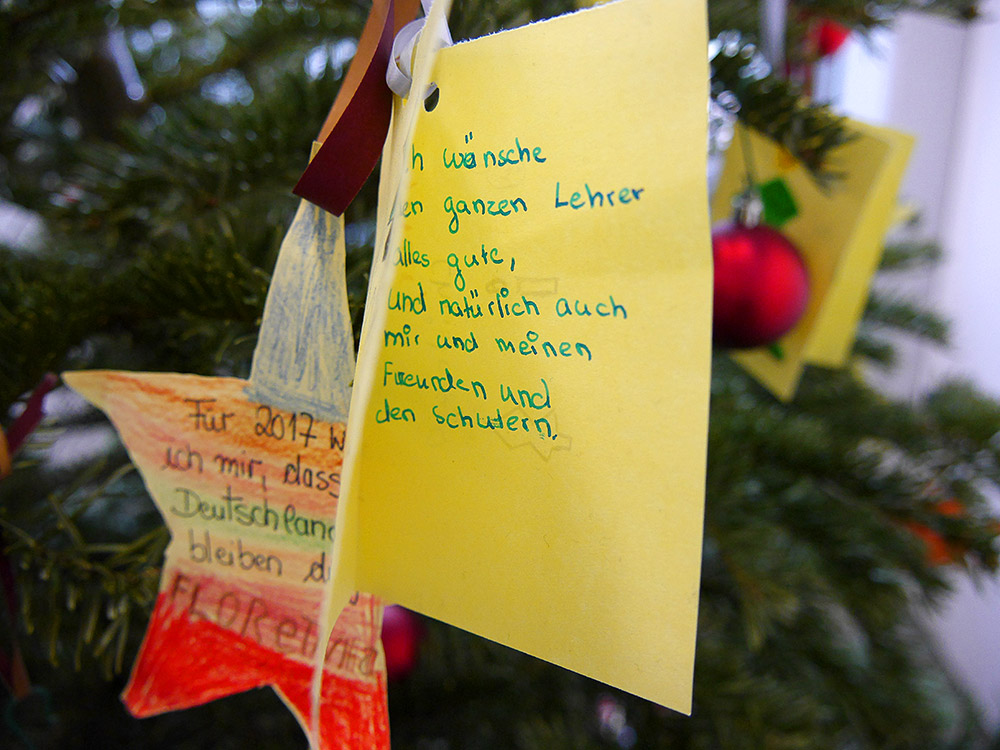 h wünsche
en ganzen Lehrer
alles gute,
und natürlich auch
mir und meinen
Freunden und
den Schülern.
Für 2017 w
ich mir, dass
Deutschland
bleiben d
FLORENTINA